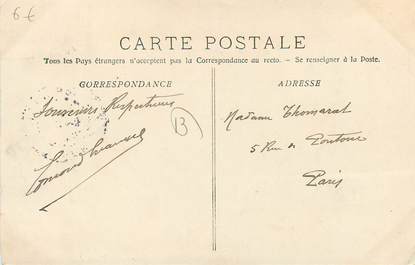 6€
CARTE POSTALE
Tous les Pays étrangers n'acceptent pas la Correspondance au recto. – Se renseigner à la Poste.
CORRESPONDANCE
ADRESSE
Souvenirs Respectueux
13
Madame Thomarat
5 Rue de Pontoise
Paris